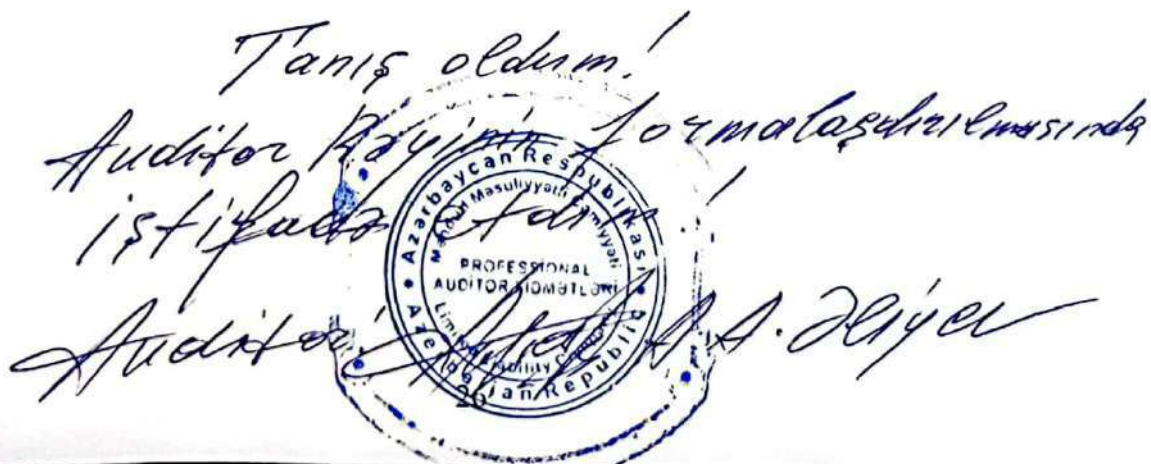 Tanış oldum!
Auditor Rəyinin formalaşdırılmasında
iştifadə etdim!
Auditor: A.A. Əliyev
Azərbaycan Respublikası
Məhdud Məsuliyyətli Cəmiyyəti
PROFESSIONAL
AUDİTOR XİDMƏTLƏRİ
Limited Liability Company
Azerbaijan Republic
26